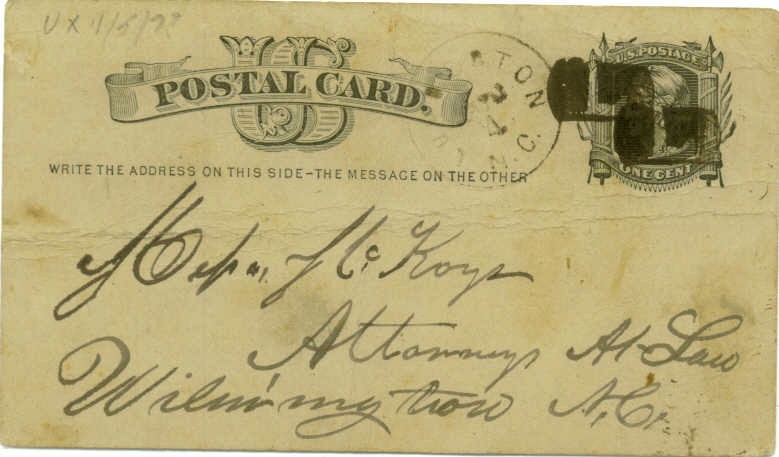 US
POSTAL CARD.
U.S. POSTAGE
ONE CENT
TON
N.C.
WRITE THE ADDRESS ON THIS SIDE-THE MESSAGE ON THE OTHER
Mess, McKoys
Attorneys At Law
Wilmington N.C.